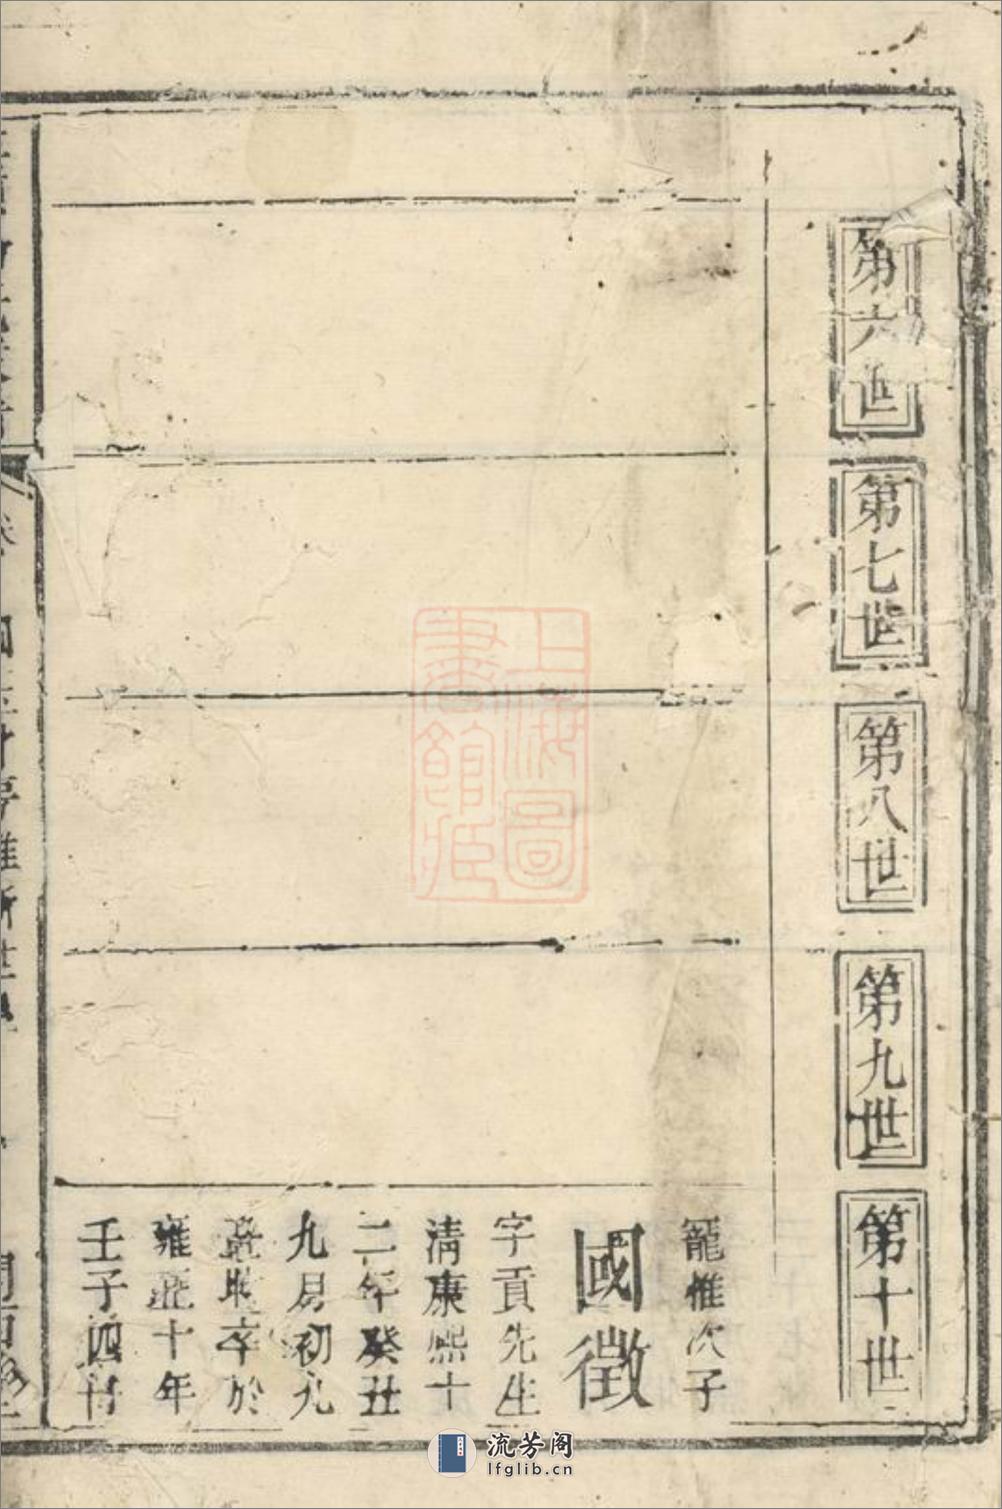 第六世
第七世
第八世
第九世
第十世
寵惟次子
國徵
字貢先生
清康熙十
二年癸丑
九月初九
時卒於
雍正十年
壬子四廿
上海圖
書館藏
流芳阁
lfglib.cn